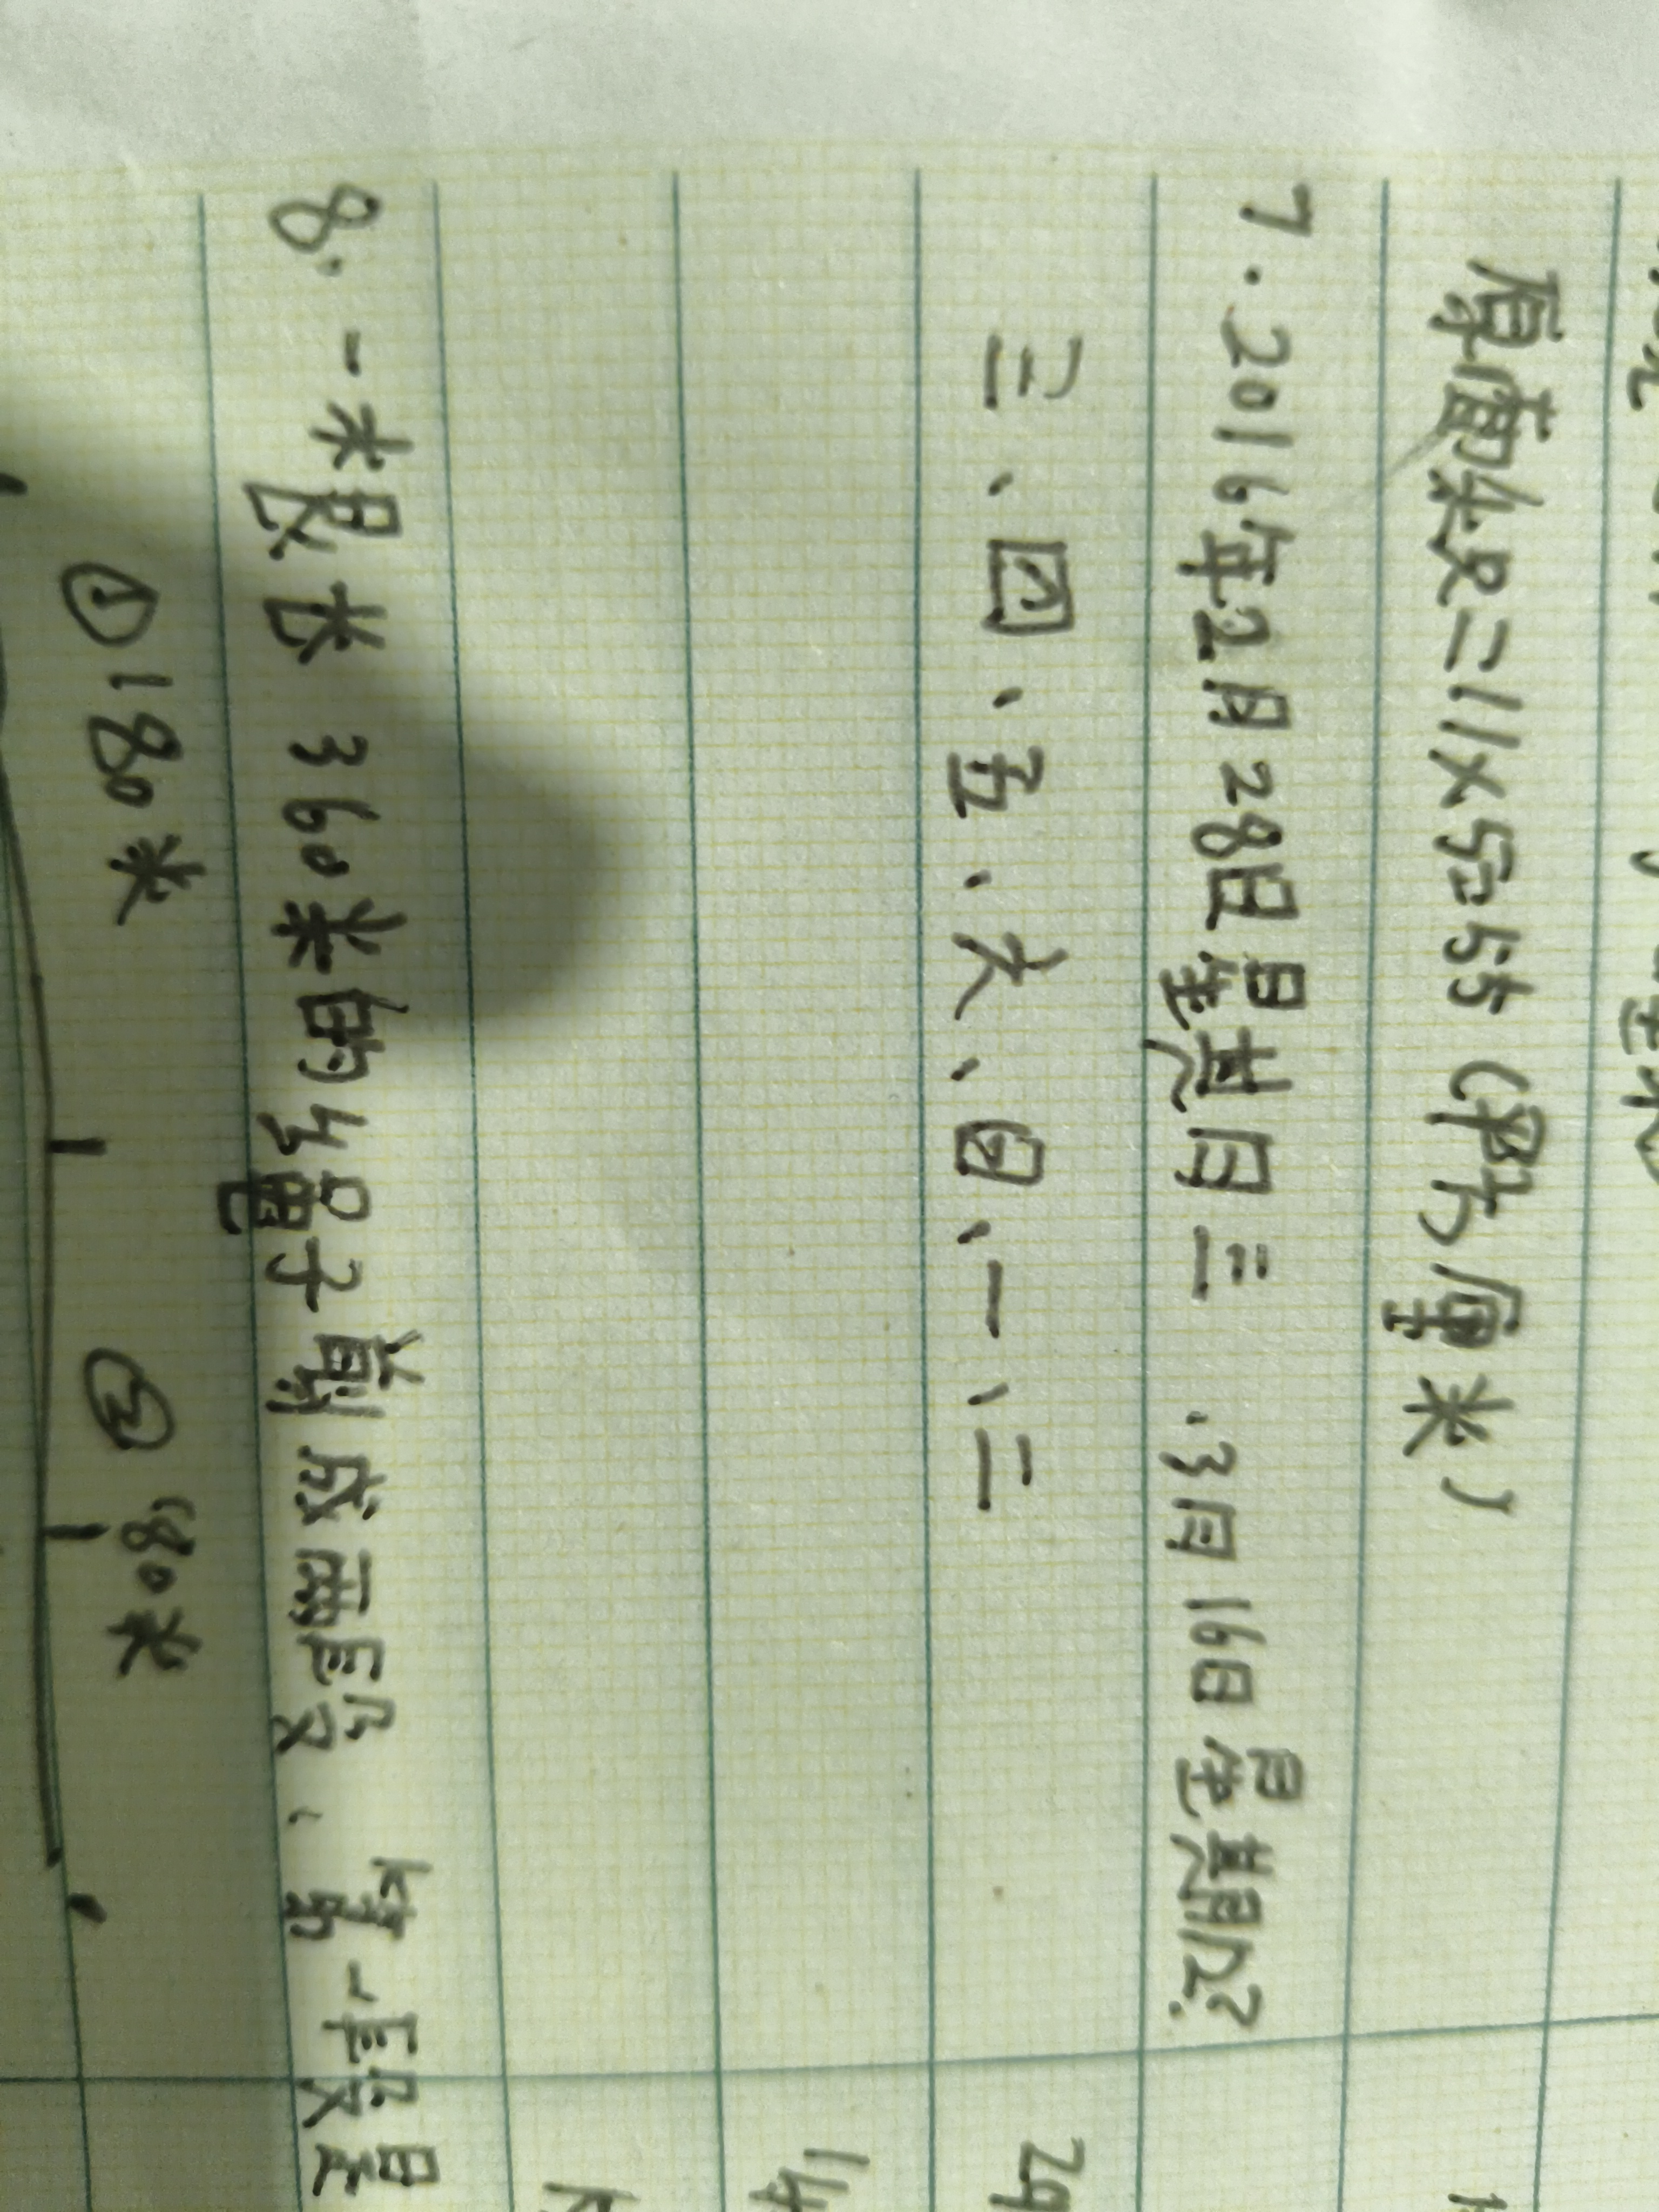 原面积是=11×5=55(平方厘米)
7.2016年2月28日星期日三.3月16日星期几?
三、四、五、六、日、一、二
29
14
8.一根长360米的绳子剪成两段、第一段是
①180米 ②180米